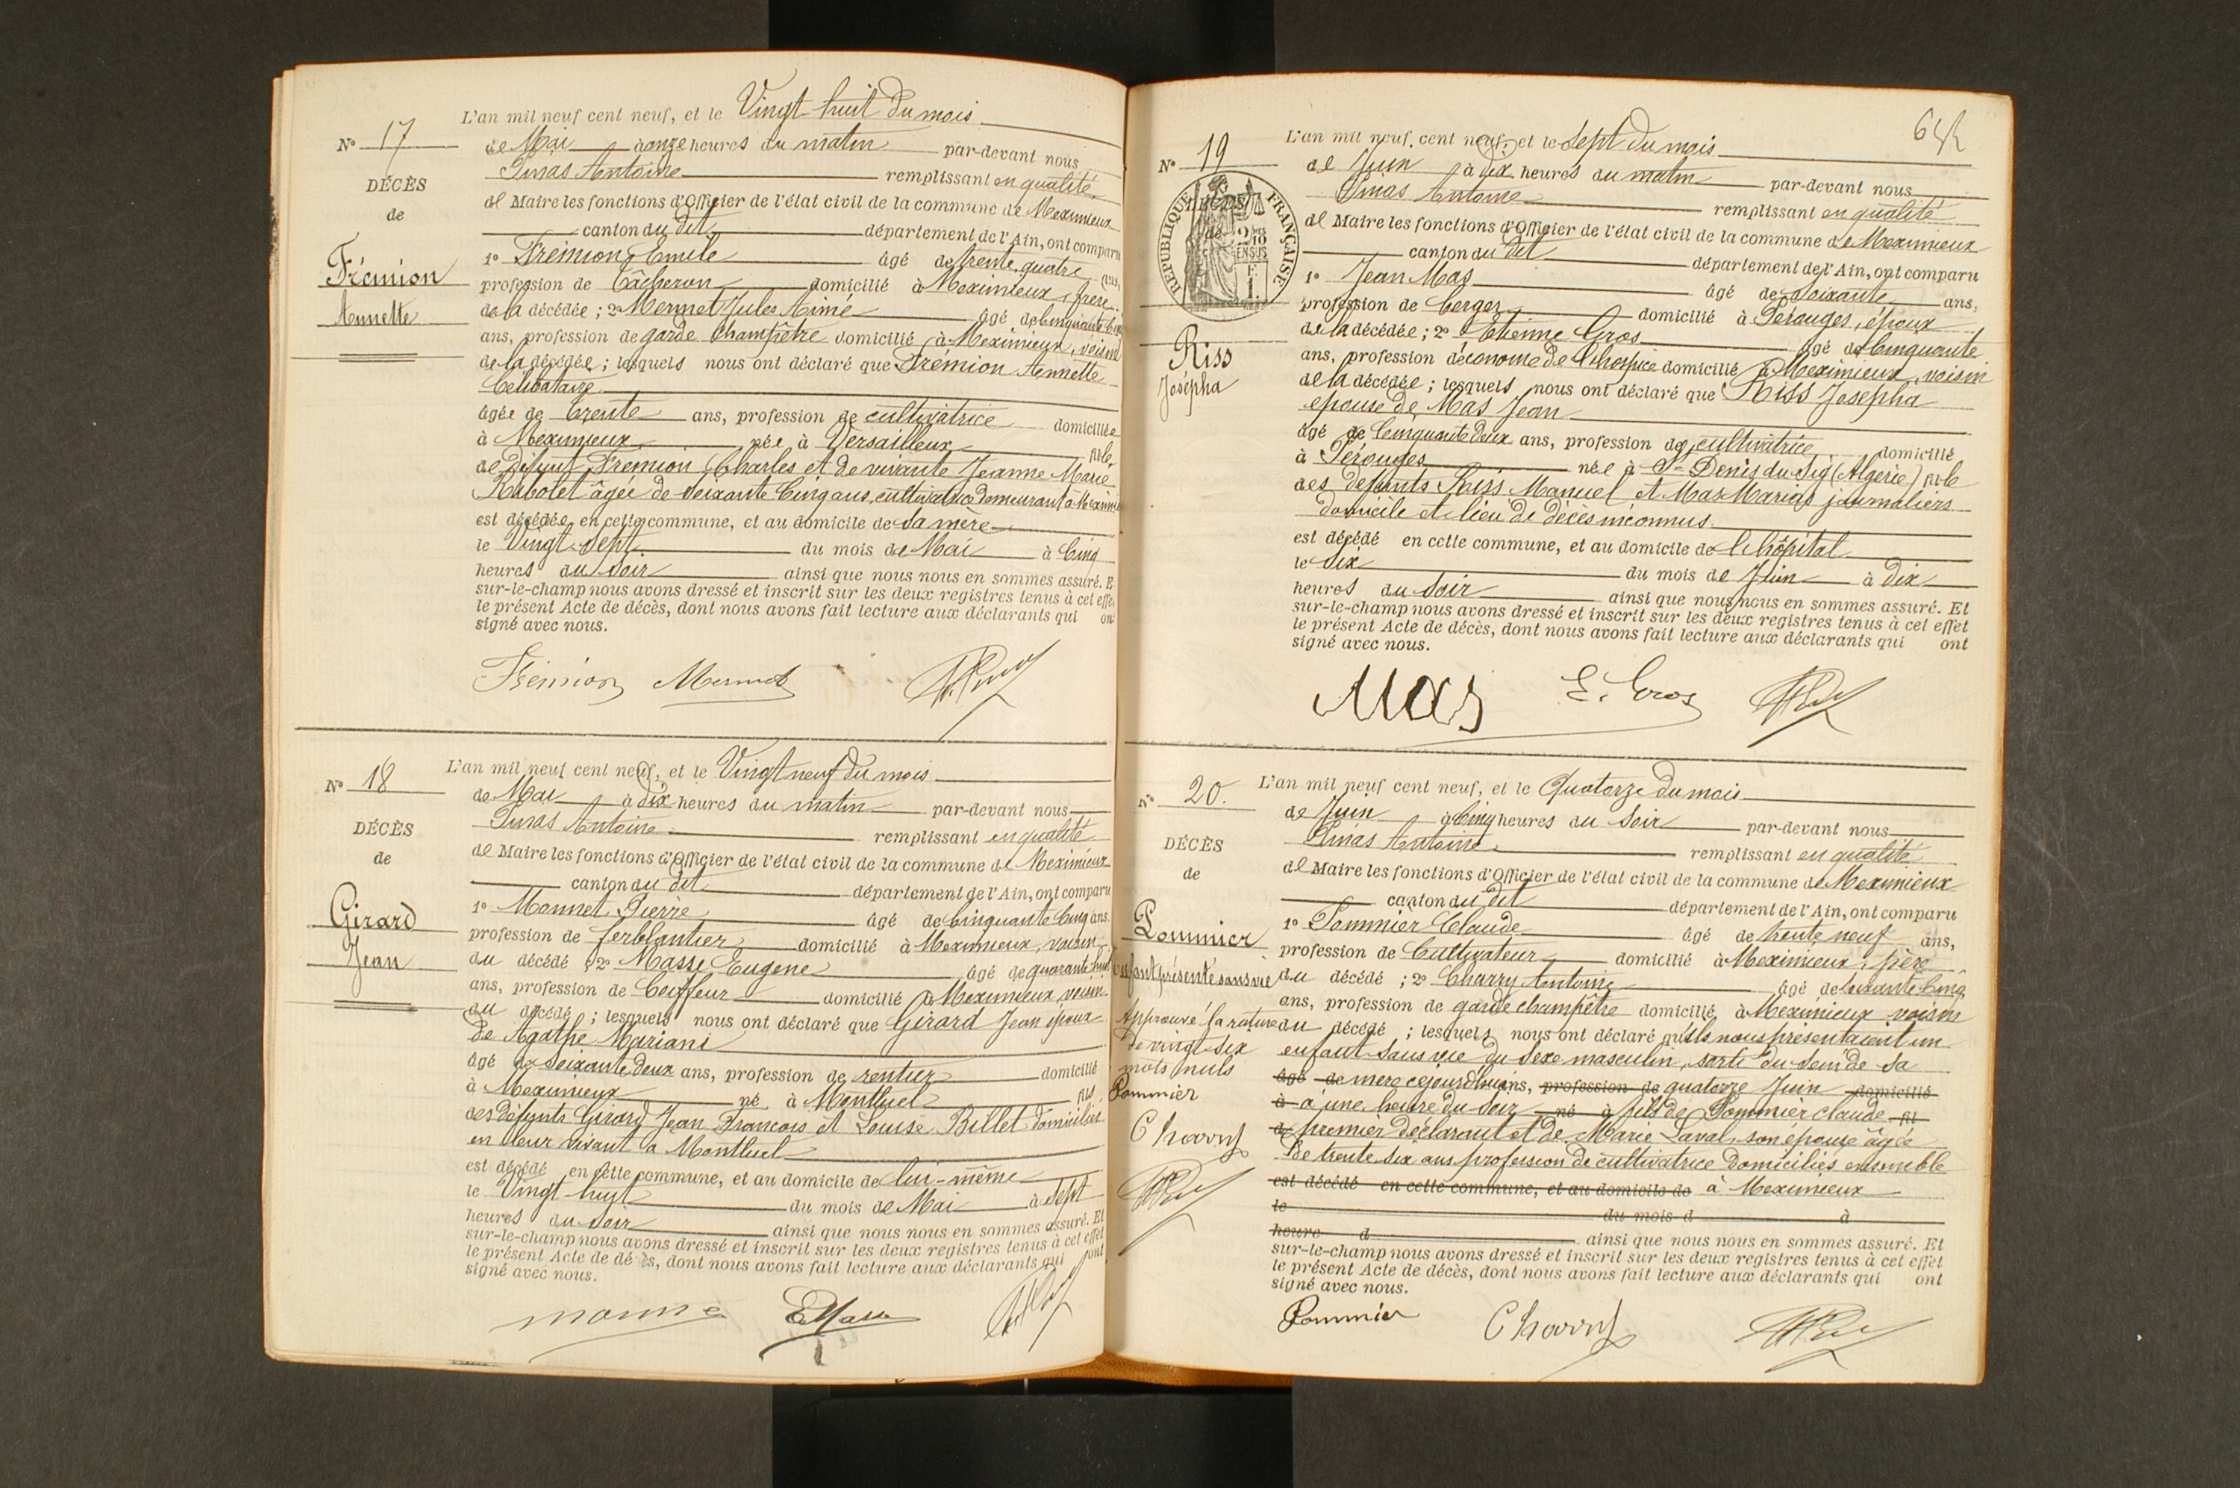 L'an mil neuf cent neuf, et le Vingt huit du mois
N° 17
de Mai à onze heures du matin par-devant nous
Antoine remplissant en qualité
DÉCÈS
de Maire les fonctions d'Officier de l'état civil de la commune de Meximieux
de
canton du dit département de l'Ain, ont comparu
1° Frémion Emile âgé de trente quatre ans,
Frémion
profession de Tâcheron domicilié à Meximieux, frère
Annette
de la décédée ; 2° Mermet Jules Aimé âgé de Cinquante Cinq
ans, profession de garde Champêtre domicilié à Meximieux, voisin
de la décédée ; lesquels nous ont déclaré que Frémion Annette
Célibataire
âgée de trente ans, profession de cultivatrice domiciliée
à Meximieux née à Versailleux fille
de défunt Fremion Charles et de vivante Jeanne Marie
Rabolet âgée de Soixante Cinq ans, cultivatrice demeurant à Meximieux
est décédée en cette commune, et au domicile de Sa mère
le Vingt Sept du mois de Mai à Cinq
heures du Soir ainsi que nous nous en sommes assuré. E
sur-le-champ nous avons dressé et inscrit sur les deux registres tenus à cet effe
le présent Acte de décès, dont nous avons fait lecture aux déclarants qui on
signé avec nous.
Frémion Mermet
L'an mil neuf cent neuf, et le Vingt neuf du mois
N° 18
de Mai à dix heures du matin par-devant nous
Antoine remplissant en qualité
DÉCÈS
de Maire les fonctions d'Officier de l'état civil de la commune de Meximieux
de
canton du dit département de l'Ain, ont comparu
1° Monnet Pierre âgé de Cinquante Cinq ans.
Girard
profession de ferblantier domicilié à Meximieux, voisin
Jean
du décédé ; 2° Masse Eugene âgé de quarante huit
ans, profession de Coiffeur domicilié à Meximieux, voisin
du décédé ; lesquels nous ont déclaré que Girard Jean époux
de Agathe Mariani
âgé de Soixante deux ans, profession de rentier domicilié
à Meximieux né à Montluel fils
des défunts Girard Jean François et Louise Billet domiciliés
en leur vivant à Montluel
est décédé en cette commune, et au domicile de lui-même
le Vingt huit du mois de Mai à Sept
heures du Soir ainsi que nous nous en sommes assuré. Et
sur-le-champ nous avons dressé et inscrit sur les deux registres tenus à cet effet
le présent Acte de décès, dont nous avons fait lecture aux déclarants qui ont
signé avec nous.
E Masse
64
L'an mil neuf cent neuf, et le Sept du mois
N° 19
de Juin à dix heures du matin par-devant nous
Antoine remplissant en qualité
RÉPUBLIQUE FRANÇAISE
de Maire les fonctions d'Officier de l'état civil de la commune de Meximieux
canton du dit département de l'Ain, ont comparu
1° Jean Mas âgé de Soixante ans,
profession de berger domicilié à Pérouges, époux
de la décédée ; 2° Etienne Gros âgé de Cinquante
Riss
ans, profession d'économe de l'hospice domicilié à Meximieux, voisin
Josépha
de la décédée ; lesquels nous ont déclaré que Riss Josepha
épouse de Mas Jean
âgé de Cinquante deux ans, profession de cultivatrice domicilié
à Pérouges née à St Denis du Sig (Algérie) fille
des défunts Riss Manuel et Mas Maria, journaliers
domicile et lieu de décès inconnus
est décédé en cette commune, et au domicile de l'hôpital
le Six du mois de Juin à dix
heures du Soir ainsi que nous nous en sommes assuré. Et
sur-le-champ nous avons dressé et inscrit sur les deux registres tenus à cet effet
le présent Acte de décès, dont nous avons fait lecture aux déclarants qui ont
signé avec nous.
Mas E. Gros
L'an mil neuf cent neuf, et le Quatorze du mois
N° 20.
de Juin à Cinq heures du Soir par-devant nous
Antoine remplissant en qualité
DÉCÈS
de Maire les fonctions d'Officier de l'état civil de la commune de Meximieux
de
canton du dit département de l'Ain, ont comparu
1° Pommier Claude âgé de trente neuf ans,
Pommier
profession de Cultivateur domicilié à Meximieux, père
enfant présenté sans vie
du décédé ; 2° Charry Antoine âgé de soixante Cinq
ans, profession de garde champêtre domicilié à Meximieux voisin
Approuvé la rature
du décédé ; lesquels nous ont déclaré qu'ils nous présentaient un
de vingt six
enfant sans vie du sexe masculin, sorti du sein de sa
mots nuls
âgé de mère cejourd'hui ans, profession de quatorze Juin domicilié
Pommier
à à une heure du Soir né à fils de Pommier Claude fil
Charry
de premier déclarant et de Marie Laval, son épouse âgée
de trente six ans profession de cultivatrice domiciliés ensemble
est décédé en cette commune, et au domicile de à Meximieux
le du mois d à
heure d ainsi que nous nous en sommes assuré. Et
sur-le-champ nous avons dressé et inscrit sur les deux registres tenus à cet effet
le présent Acte de décès, dont nous avons fait lecture aux déclarants qui ont
signé avec nous.
Pommier Charry